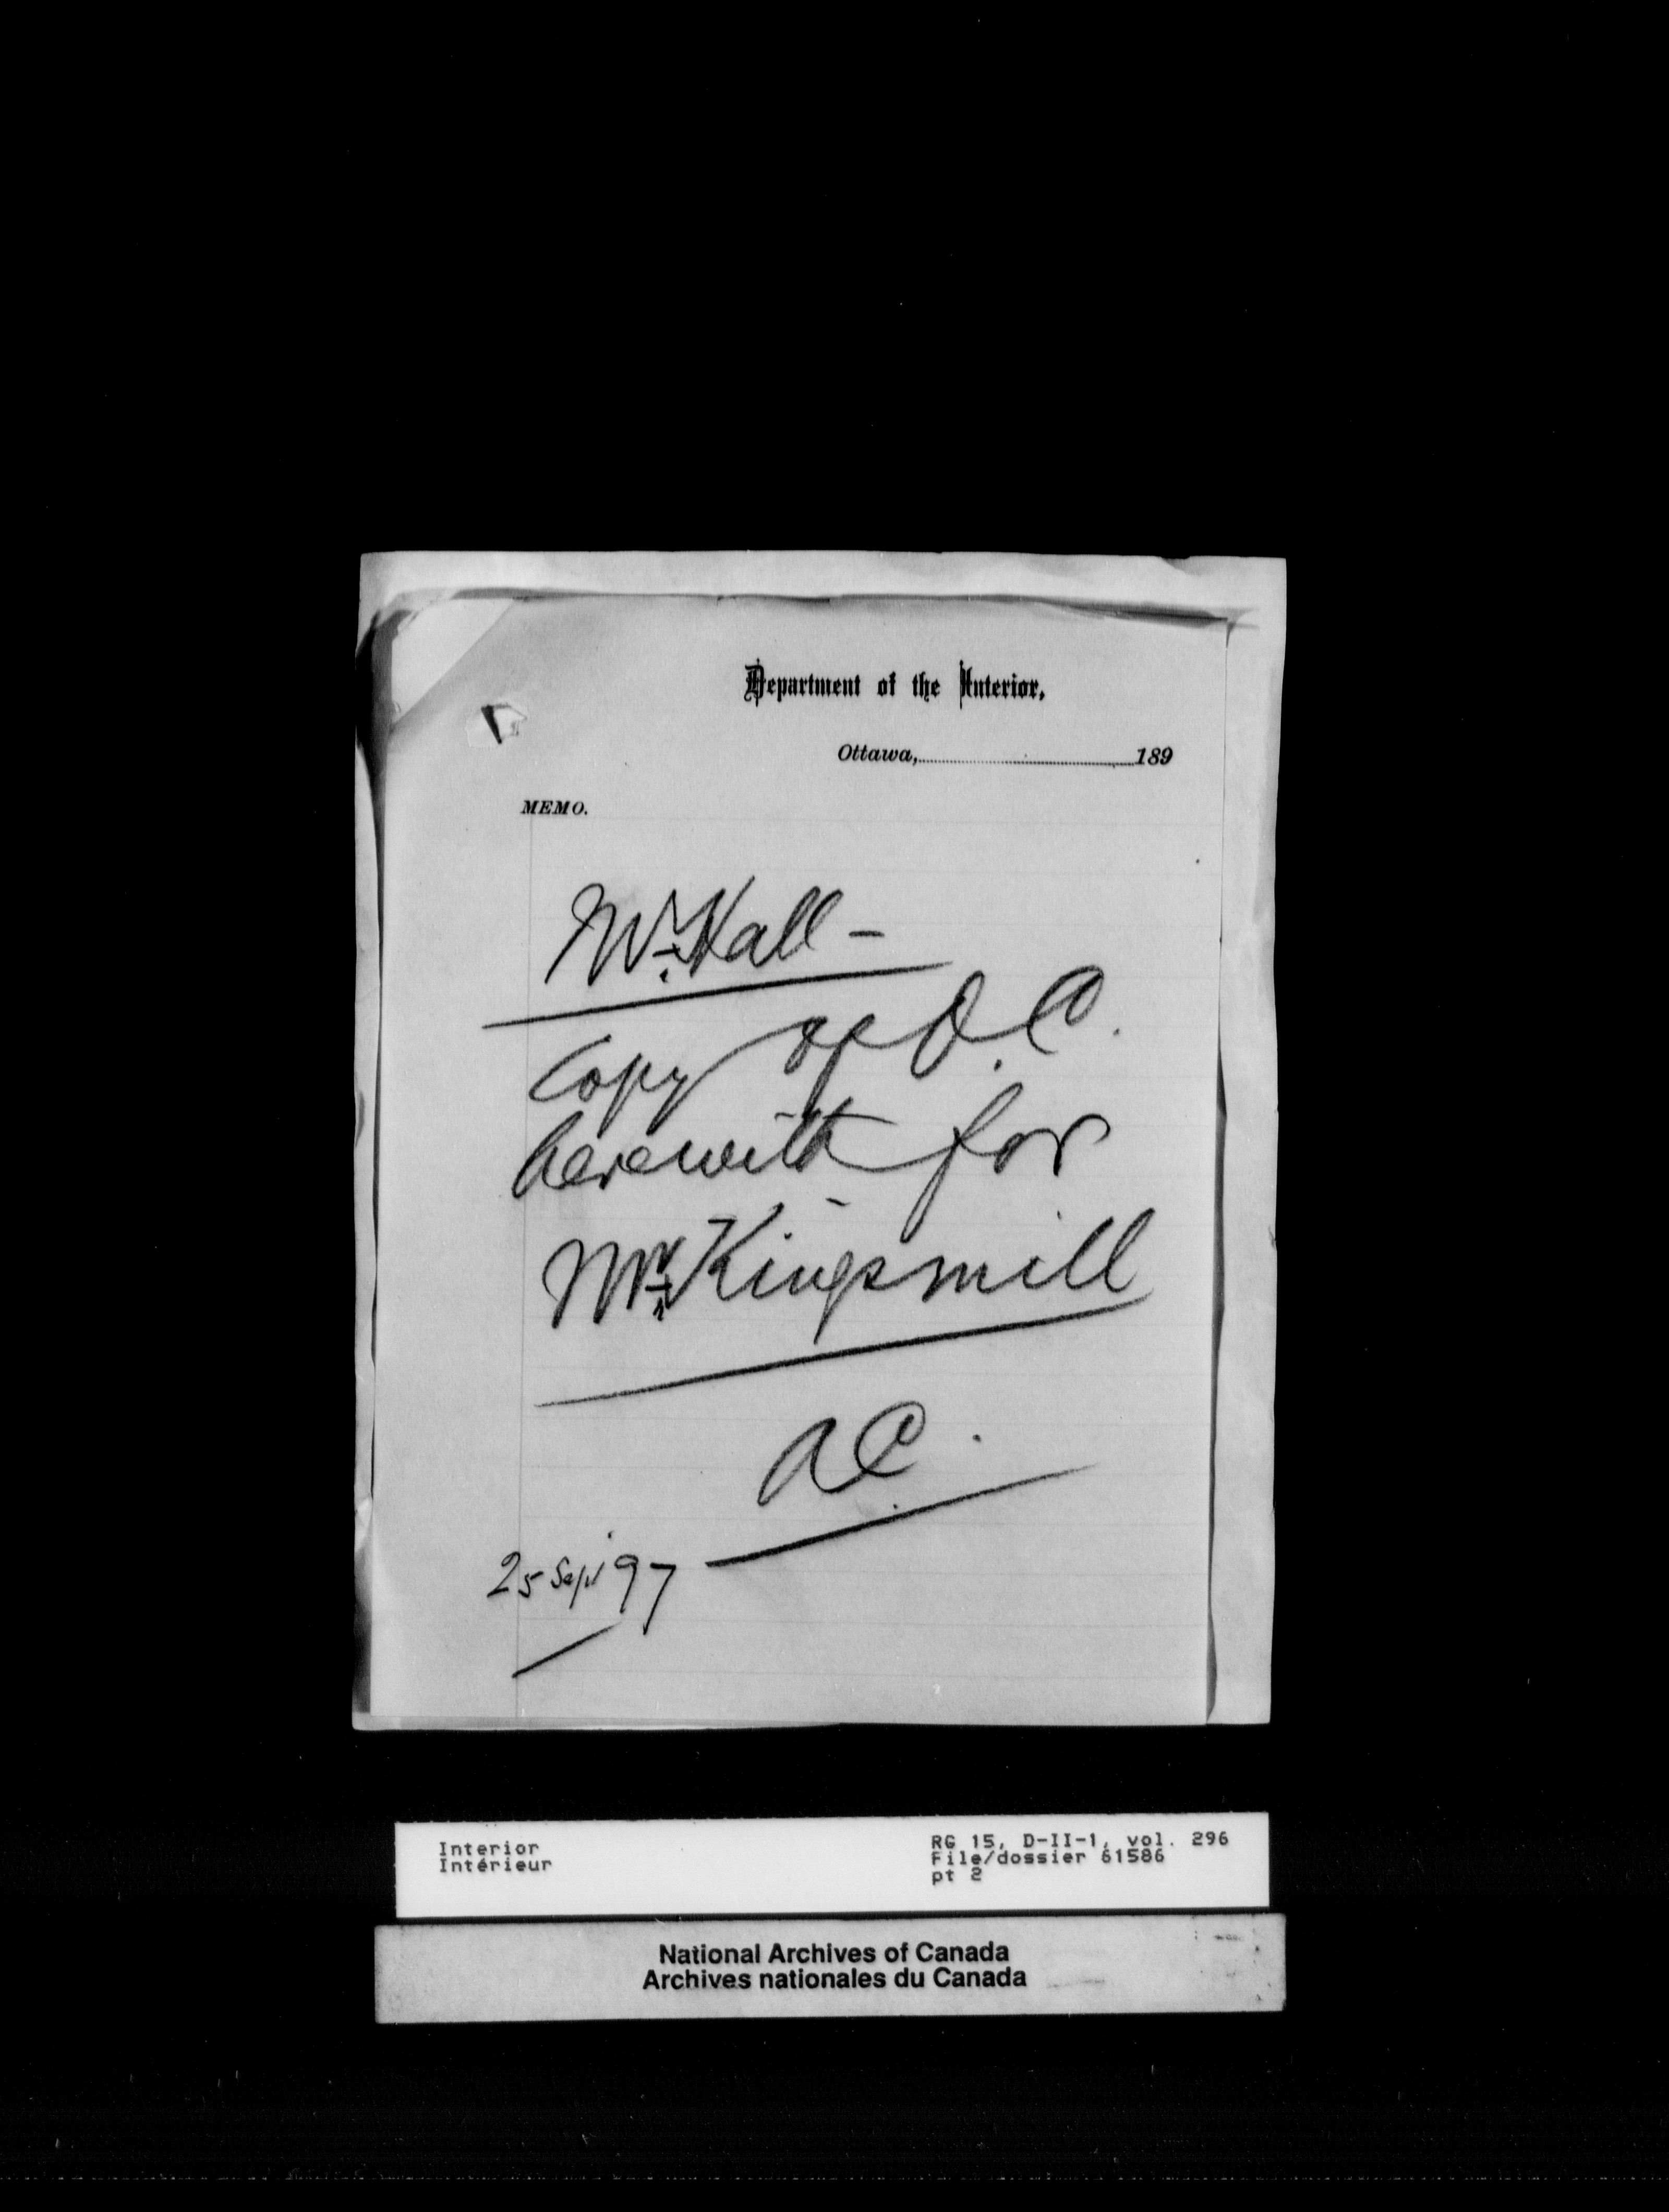 Department of the Interior,
Ottawa, 189
MEMO.
Mr. Hall –
Copy of O.C.
herewith for
Mr. Kingsmill
A.C.
25 Sept 97
Interior
Intérieur
RG 15, D-II-1, vol. 296
File/dossier 61586
pt 2
National Archives of Canada
Archives nationales du Canada